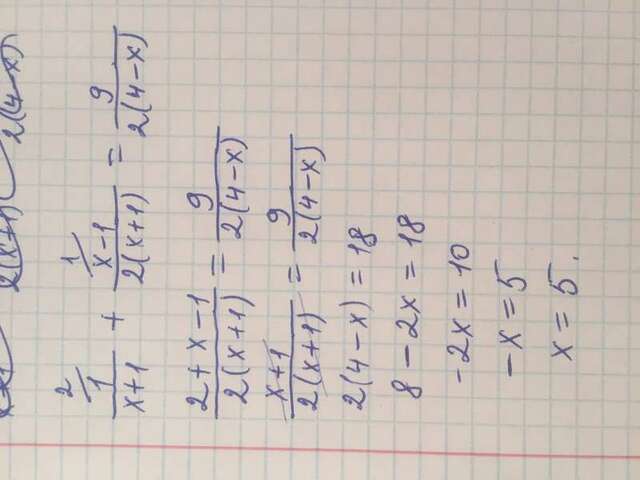 2(x+1) 2(4-x)
2/ 1/
1/(x+1) + (x-1)/(2(x+1)) = 9/(2(4-x))
(2+x-1)/(2(x+1)) = 9/(2(4-x))
(x+1)/(2(x+1)) = 9/(2(4-x))
2(4-x) = 18
8-2x = 18
-2x = 10
-x = 5
x = 5.